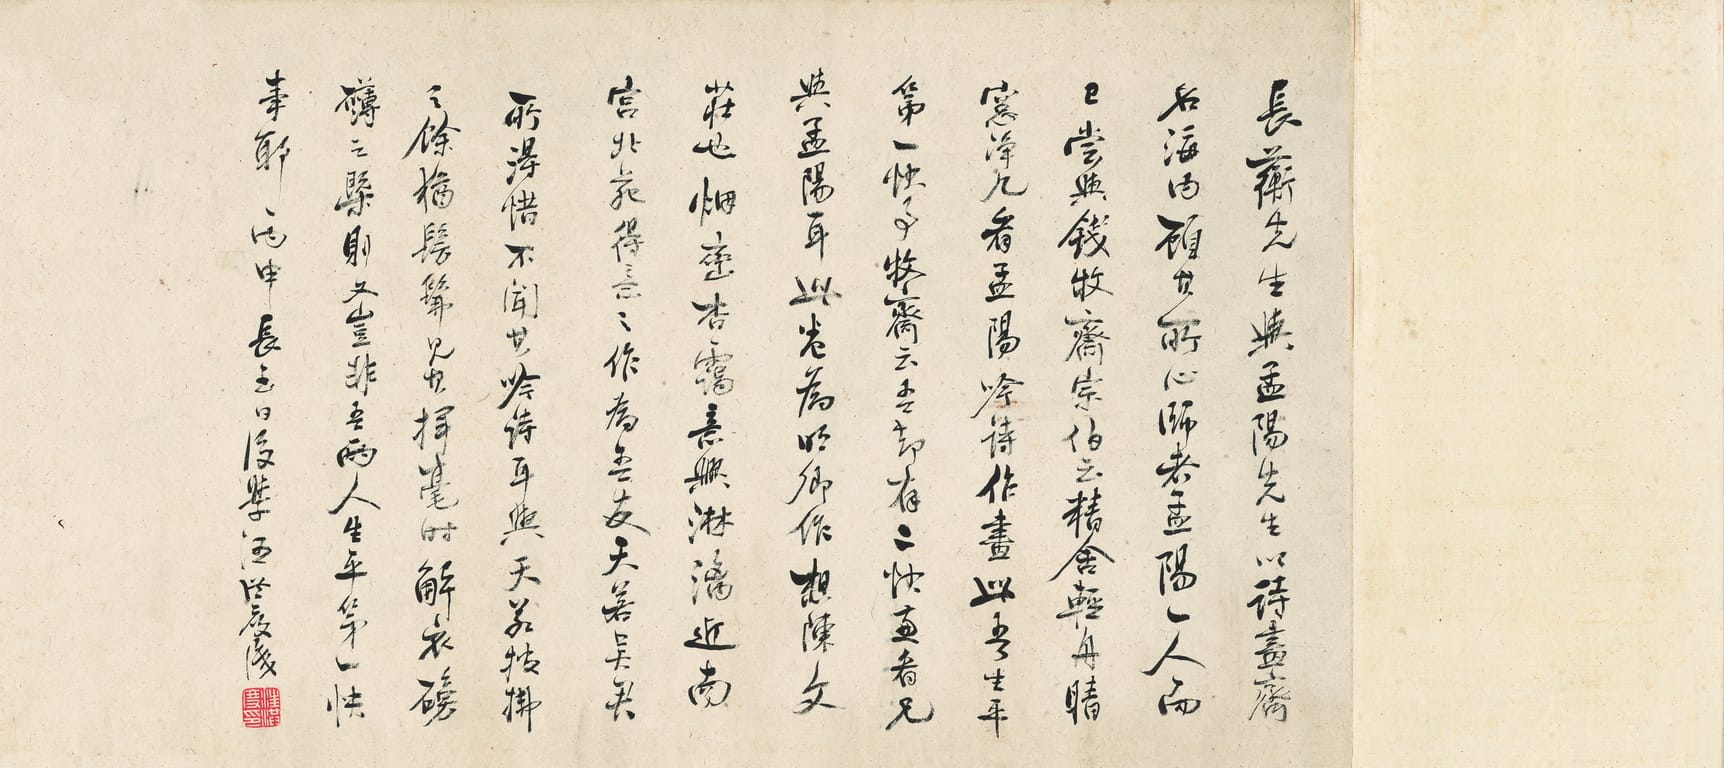 長蘅先生與孟陽先生以詩畫齊
名海內顧其所心師者孟陽一人而
已嘗與錢牧齋宗伯云精舍輕舟晴
窓淨几看孟陽吟詩作畫此吾生平
第一快事牧齋云吾却有二快兼看兄
與孟陽耳此卷為明卿作想陳文
莊也烟巒杏靄意興淋漓近南
宮北苑得意之作為吾友天若吳君
所得惜不聞其吟詩耳與天若披拂
之餘猶髣髴見其揮毫時解衣磅
礴之槩則又豈非吾兩人生平第一快
事耶丙申長至日後學汪洪度識